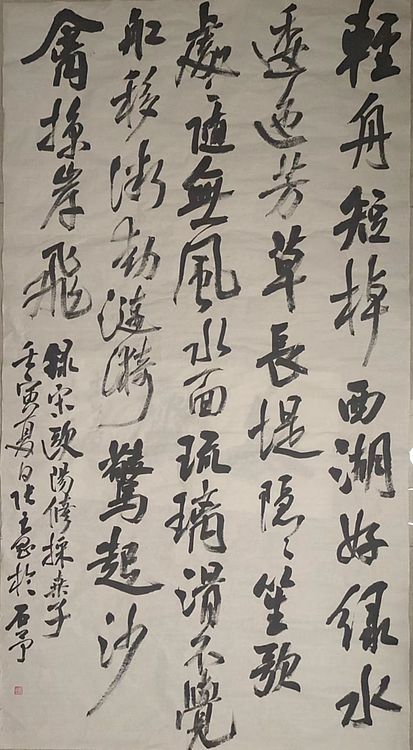 輕舟短棹西湖好綠水
逶迤芳草長堤隱〻笙歌
處〻隨無風水面琉璃滑不覺
舡移微動漣漪驚起沙
禽掠岸飛
録宋歐陽脩採桑子
壬寅夏日張於石